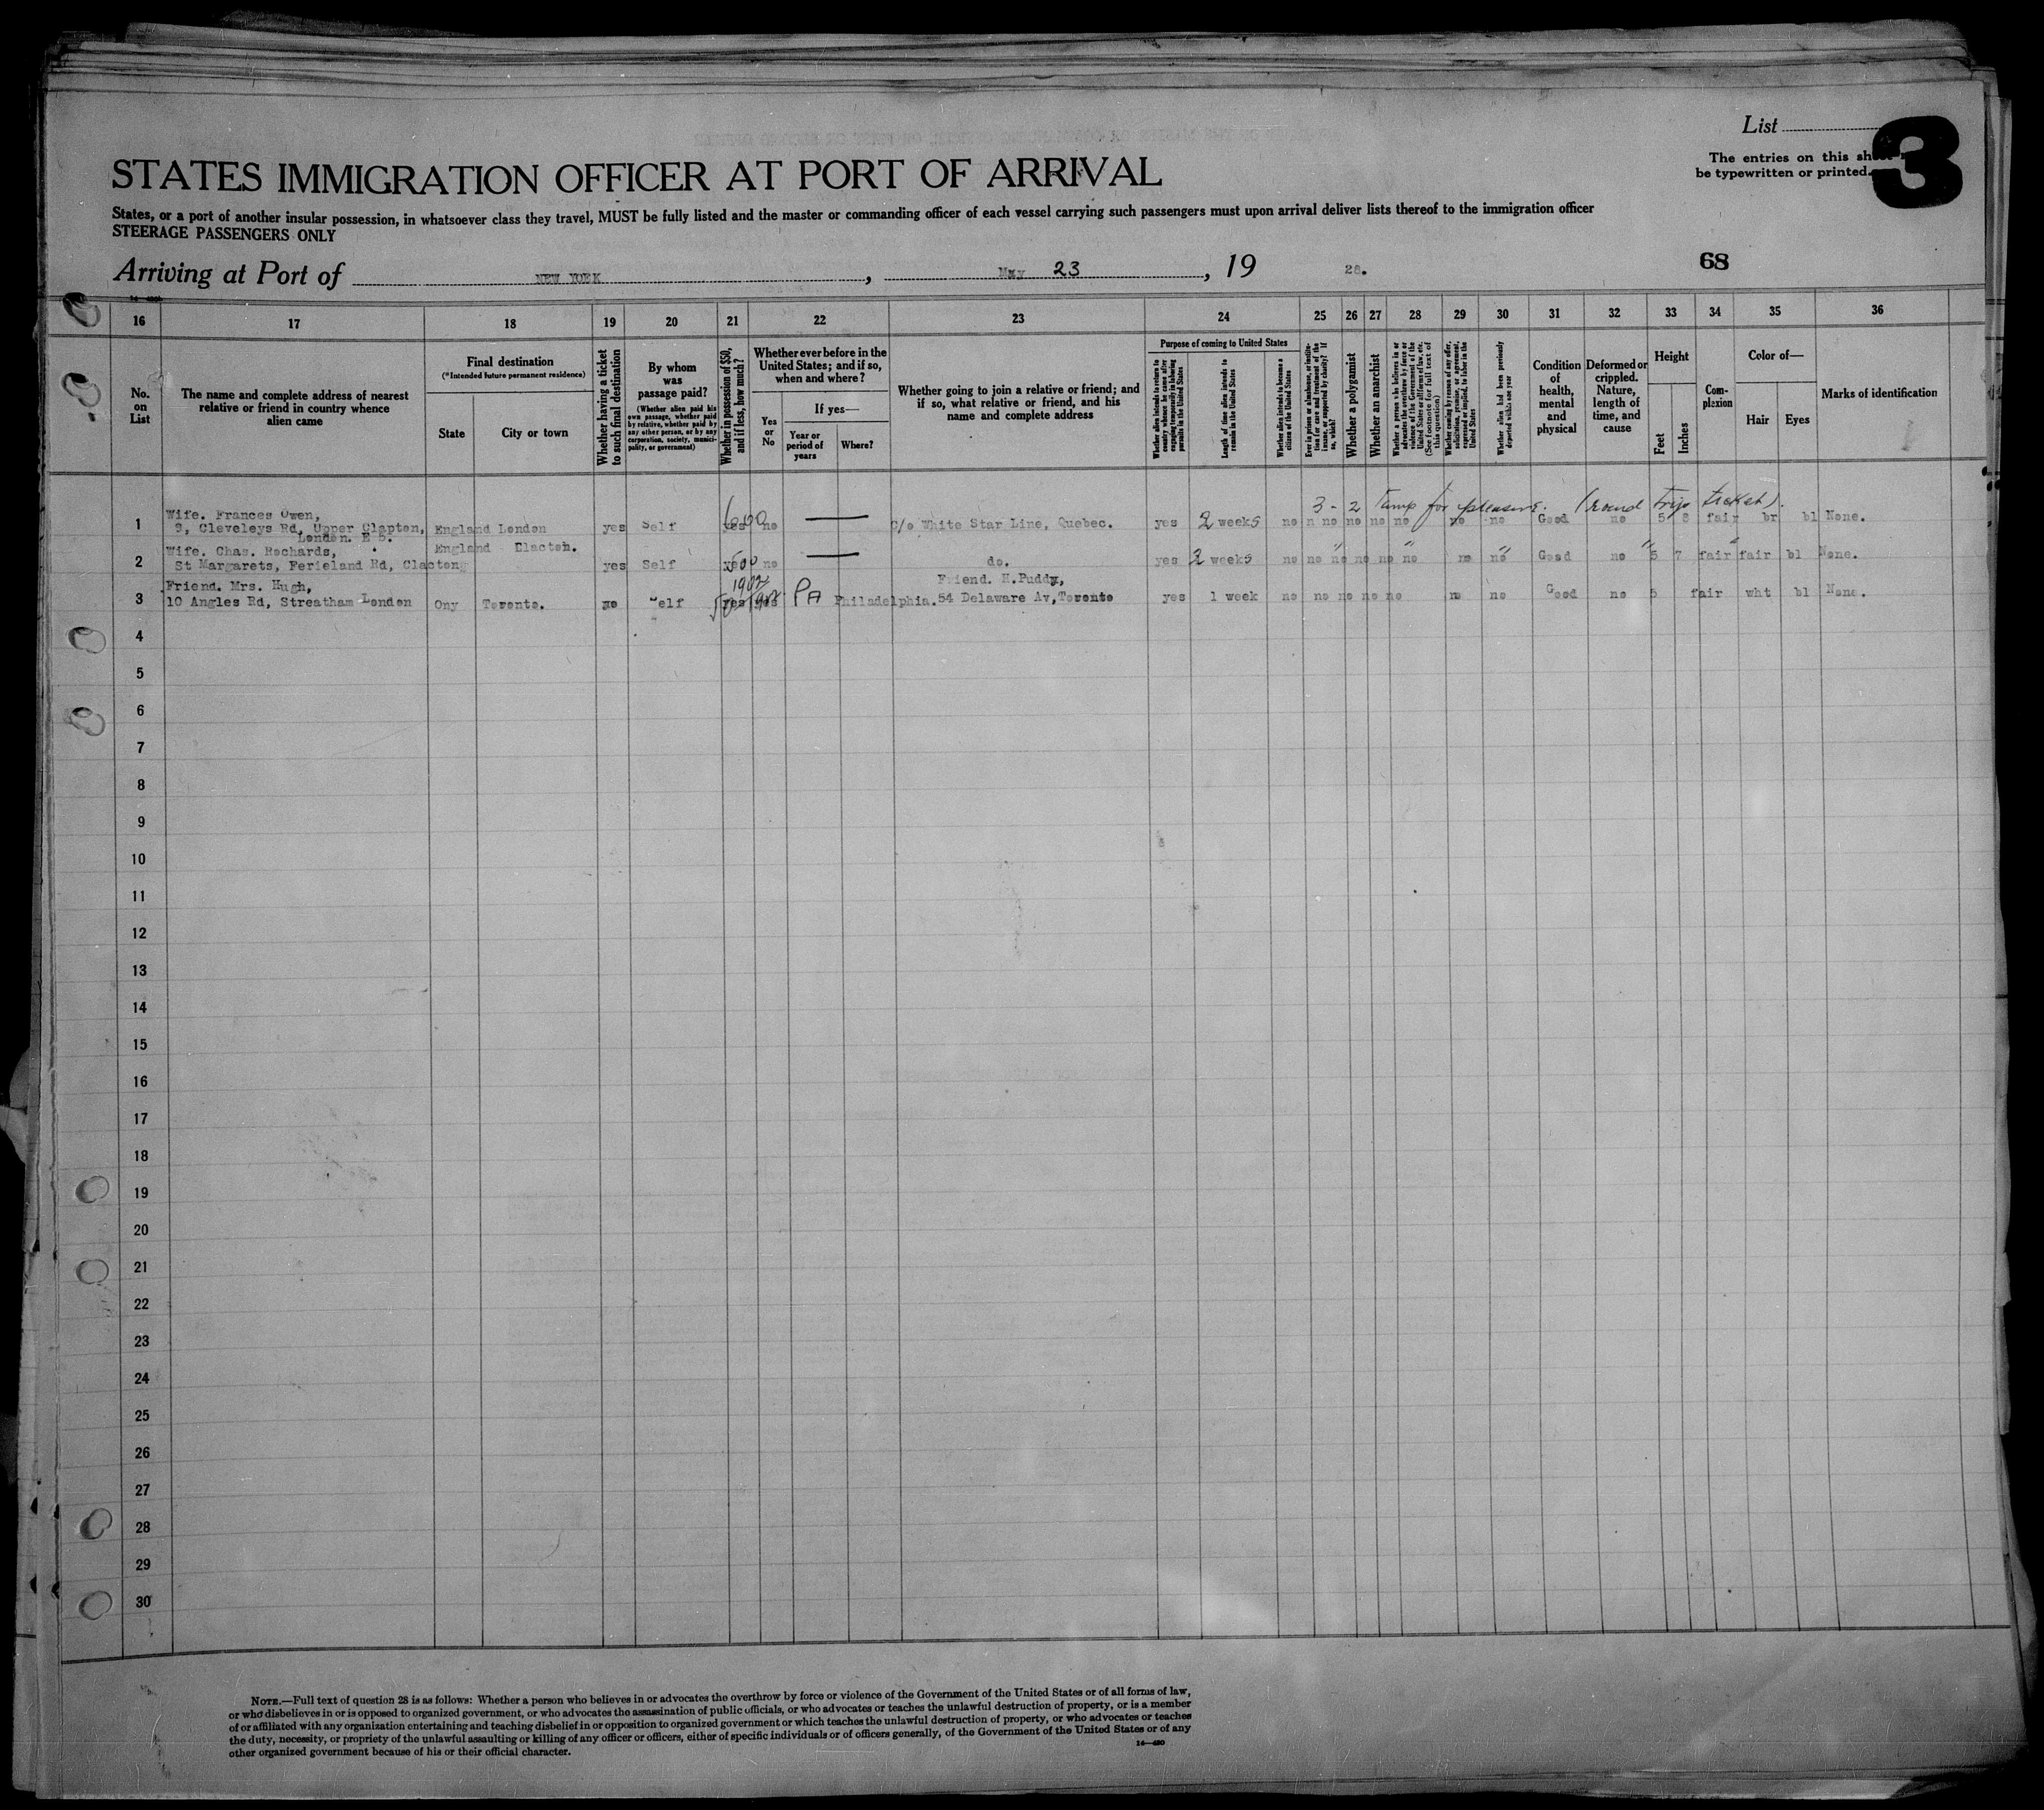 List
3
The entries on this sheet
be typewritten or printed.
STATES IMMIGRATION OFFICER AT PORT OF ARRIVAL
States, or a port of another insular possession, in whatsoever class they travel, MUST be fully listed and the master or commanding officer of each vessel carrying such passengers must upon arrival deliver lists thereof to the immigration officer
STEERAGE PASSENGERS ONLY
Arriving at Port of NEW YORK, May 23, 19 28.
68
16 17 18 19 20 21 22 23 24 25 26 27 28 29 30 31 32 33 34 35 36
No. on List
The name and complete address of nearest relative or friend in country whence alien came
Final destination
(*Intended future permanent residence)
State
City or town
Whether having a ticket to such final destination
By whom was passage paid?
(Whether alien paid his own passage, whether paid by relative, whether paid by any other person, or by any corporation, society, municipality, or government)
Whether in possession of $50, and if less, how much?
Whether ever before in the United States; and if so, when and where?
Yes or No
If yes—
Year or period of years
Where?
Whether going to join a relative or friend; and if so, what relative or friend, and his name and complete address
Purpose of coming to United States
Whether alien intends to return to country whence he came after engaging temporarily in laboring pursuits in the United States
Length of time alien intends to remain in the United States
Whether alien intends to become a citizen of the United States
Ever in prison or almshouse, or institution for care and treatment of the insane, or supported by charity? If so, which?
Whether a polygamist
Whether an anarchist
Whether a person who believes in or advocates the overthrow by force or violence of the Government of the United States or all forms of law, etc. (See footnote for full text of this question)
Whether coming by reason of any offer, solicitation, promise, or agreement, expressed or implied, to labor in the United States
Whether alien had been previously deported within one year
Condition of health, mental and physical
Deformed or crippled. Nature, length of time, and cause
Height
Feet
Inches
Complexion
Color of—
Hair
Eyes
Marks of identification
3 - 2 Temp for pleasure. (round trip ticket).
Wife. Frances Owen,
1 9, Cleveleys Rd, Upper Clapton, England London yes Self yes 600 no — C/o White Star Line, Quebec. yes 2 weeks no n no no no no no no Good no 5 8 fair br bl None.
London. E 5.
Wife. Chas. Rochards, England Clacton.
2 St Margarets, Ferieland Rd, Clacton yes Self yes 500 no — do. yes 2 weeks no no no no no no no no Good no 5 7 fair fair bl None.
Friend. Mrs. Hugh, 1907 Friend. H.Puddy,
3 10 Angles Rd, Streatham London Ony Toronto. no Self yes yes PA Philadelphia. 54 Delaware Av, Toronto yes 1 week no no no no no no no Good no 5 fair wht bl None.
4
5
6
7
8
9
10
11
12
13
14
15
16
17
18
19
20
21
22
23
24
25
26
27
28
29
30
NOTE.—Full text of question 28 is as follows: Whether a person who believes in or advocates the overthrow by force or violence of the Government of the United States or of all forms of law,
or who disbelieves in or is opposed to organized government, or who advocates the assassination of public officials, or who advocates or teaches the unlawful destruction of property, or is a member
of or affiliated with any organization entertaining and teaching disbelief in or opposition to organized government or which teaches the unlawful destruction of property, or who advocates or teaches
the duty, necessity, or propriety of the unlawful assaulting or killing of any officer or officers, either of specific individuals or of officers generally, of the Government of the United States or of any
other organized government because of his or their official character.
14—430